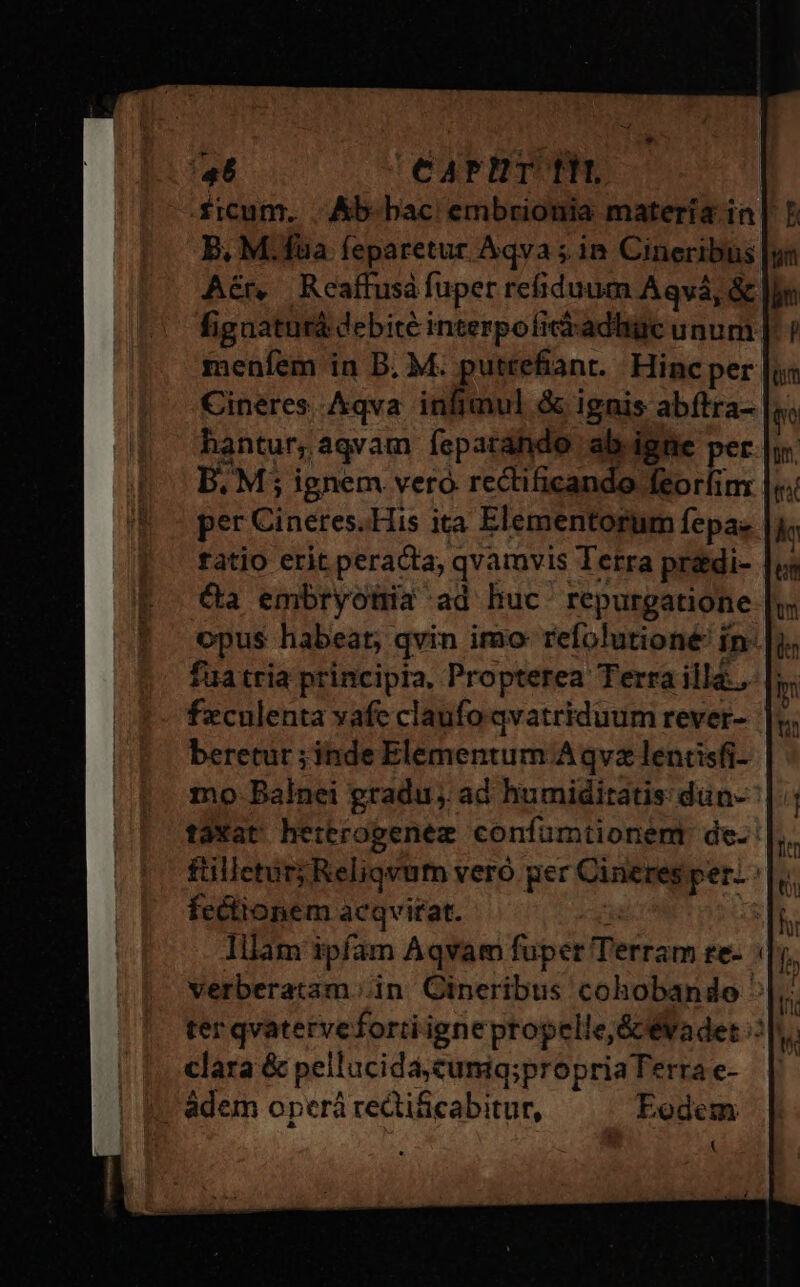 46 CAPUT III.
ſicum. Ab hac embrionia materia in
B. M. ſua ſeparetur Aqva; in Cineribus
Aër, Reaffusâ ſuper reſiduum Aqvâ, &
ſignaturâ debitè interpoſitâ adhuc unum
menſem in B. M. putrefiant. Hinc per
Cineres Aqva inſimul & ignis abſtra-
hantur, aqvam ſeparando ab igne per
B. M; ignem verò rectificando ſeorſim
per Cineres. His ita Elementorum ſepa-
ratio erit peracta, qvamvis Terra prædi-
cta embryonia ad huc repurgatione
opus habeat, qvin imo reſolutione in
ſua tria principia. Propterea Terra illa,
fæculenta vaſe clauſo qvatriduum rever-
beretur; inde Elementum Aqvæ lentisſi-
mo Balnei gradu, ad humiditatis dun-
taxat heterogeneæ conſumtionem de-
ſtilletur; Reliqvum verò per Cineres per-
fectionem acqvirat.
Illam ipſam Aqvam ſuper Terram re-
verberatam in Cineribus cohobando
ter qvaterve forti igne propelle, & evadet
clara & pellucida, cumq; propria Terra e-
âdem operâ rectificabitur, Eodem